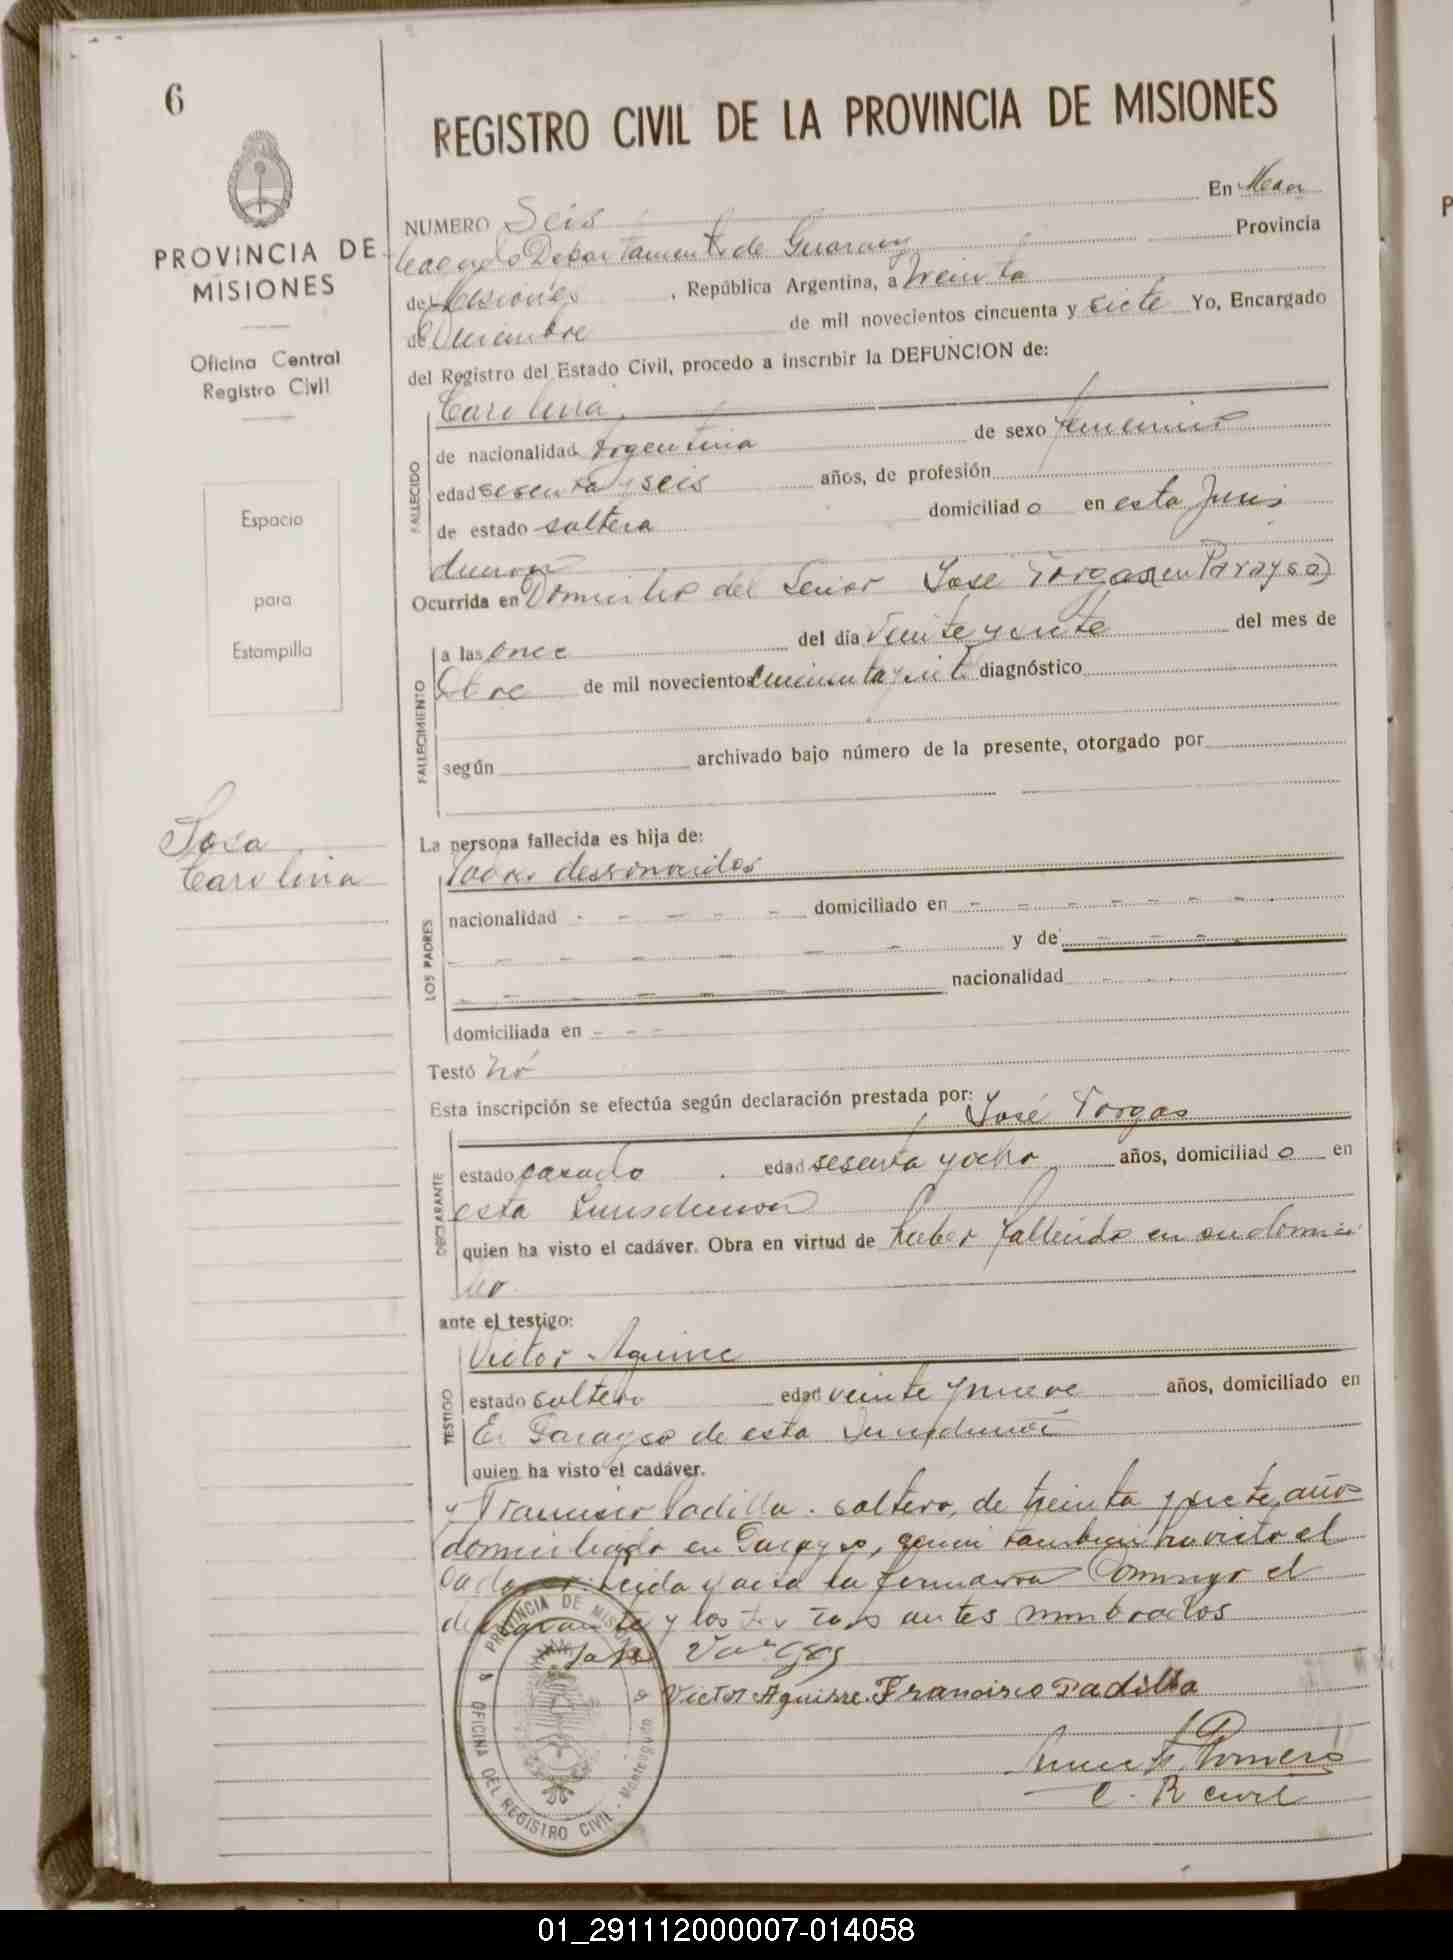 6
REGISTRO CIVIL DE LA PROVINCIA DE MISIONES
PROVINCIA DE
MISIONES
Oficina Central
Registro Civil
Espacio
para
Estampilla
Sosa
Carolina
NUMERO Seis En
Departamento de Guarany Provincia
de Misiones , República Argentina, a Treinta
de Diciembre de mil novecientos cincuenta y siete Yo, Encargado
del Registro del Estado Civil, procedo a inscribir la DEFUNCION de:
Carolina
FALLECIDO
de nacionalidad Argentina de sexo femenino
edad sesenta y seis años, de profesión
de estado soltera domiciliado en esta Juris
diccion
Ocurrida en Domicilio del Señor José Vargas (en Parayso)
FALLECIMIENTO
a las once del día veinte y siete del mes de
de mil novecientos cincuenta y siete diagnóstico
según archivado bajo número de la presente, otorgado por
La persona fallecida es hija de:
LOS PADRES
Padres desconocidos
nacionalidad - - - - - domiciliado en - - - - - - -
- - - - - - y de - - -
- - - - - - - nacionalidad - - -
domiciliada en - - -
Testó No
Esta inscripción se efectúa según declaración prestada por: José Vargas
DECLARANTE
estado casado edad sesenta y ocho años, domiciliado en
esta Jurisdiccion
quien ha visto el cadáver. Obra en virtud de haber fallecido en su domici
lio
ante el testigo:
TESTIGO
Victor Aguirre
estado soltero edad veinte y nueve años, domiciliado en
El Parayso de esta Jurisdiccion
quien ha visto el cadáver.
y Francisco Padilla, soltero, de treinta y siete años
domiciliado en Parayso, quien tambien ha visto el
cadaver. Leida el acta la firmaron Conmigo el
declarante y los testigos antes nombrados
José Vargas
Victor Aguirre. Francisco Padilla
Romero
E. R civil
PROVINCIA DE MISIONES
OFICINA DEL REGISTRO CIVIL - Monteagudo
01_291112000007-014058